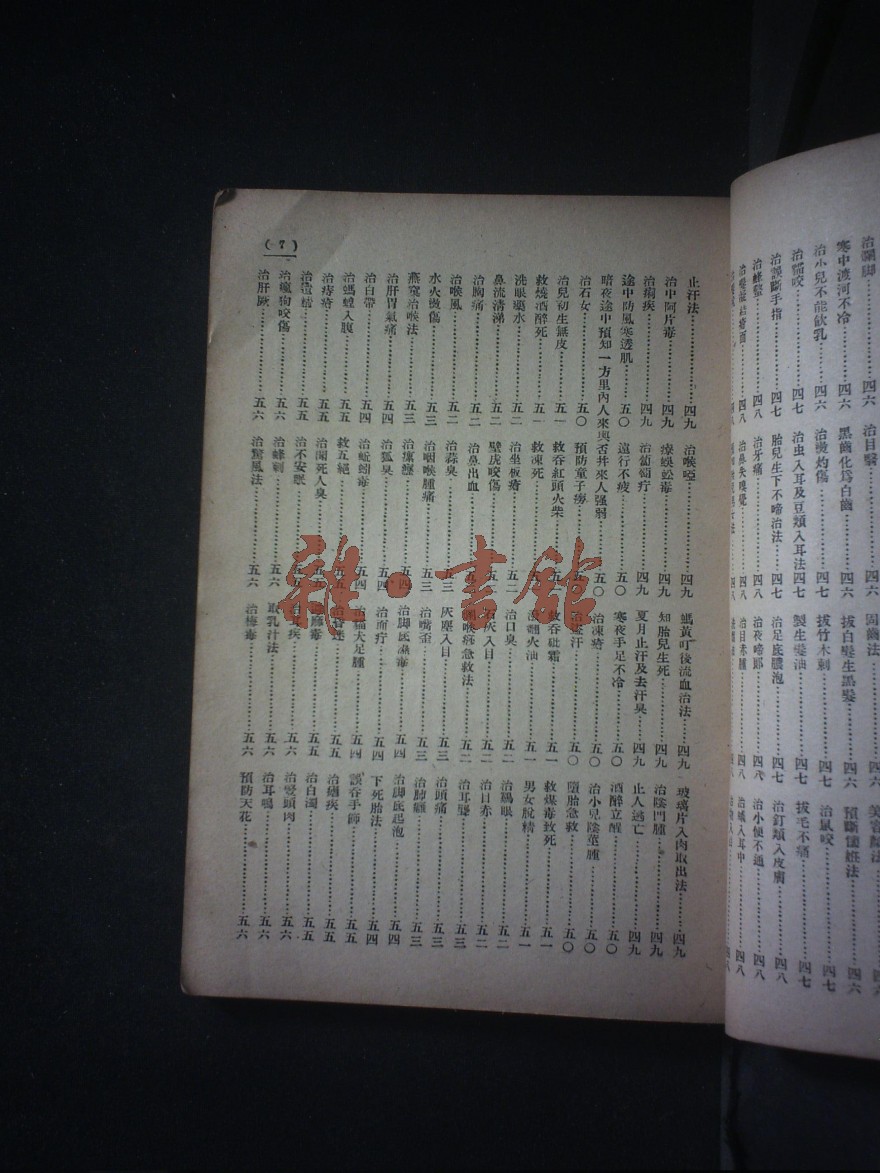 治目翳 四六 固齒法 四六
寒中渡河不冷 四六 黑齒化爲白齒 四六 拔白髮生黑髮 四六 預斷懷姙法 四六
治小兒不能飲乳 四六 治燙灼傷 四七 拔竹木刺 四六 治鼠咬 四七
治貓咬 四七 治虫入耳及豆類入耳法 四七 製生髮油 四七 拔毛不痛 四七
治誤斷手指 四七 胎兒生下不啼治法 四七 治足底膿泡 四七 治釘類入皮膚 四八
治蜂螫 四八 治牙痛 四八 治夜啼郎 四八 治小便不通 四八
治鼻失嗅覺 四八 治目赤腫 四八 入耳中 四八
止汗法 四九 治喉啞 四九 螞黃叮後流血治法 四九 玻璃片入肉取出法 四九
治中阿片毒 四九 療蜈蚣毒 四九 知胎兒生死 四九 治陰門腫 四九
治痢疾 四九 治葡萄疔 四九 夏月止汗及去汗臭 四九 止人逃亡 四九
途中防風寒透肌 五〇 遠行不疲 五〇 寒夜手足不冷 五〇 酒醉立醒 五〇
暗夜途中預知一方里內人來與否幷來人强弱 五〇 治凍瘡 五〇 治小兒陰莖腫 五〇
治石女 五〇 預防童子癆 治盜汗 五〇 墮胎急救 五〇
治兒初生無皮 五一 救吞紅頭火柴 救吞砒霜 五一 救煤毒致死 五一
救燒酒醉死 五一 救凍死 火油 五一 男女脫精 五一
洗眼藥水 五二 治坐板瘡 五二 治口臭 五二 治鷄眼 五二
鼻流清涕 五二 壁虎咬傷 灰入目 五二 治目赤 五二
治胸痛 五二 治鼻出血 喉痧急救法 五二 治耳聾 五三
治喉風 五二 治蒜臭 五三 灰塵入目 五三 治頭痛 五三
水火燙傷 五三 治咽喉腫痛 五三 治嘴歪 五三 治肺癰 五三
燕窩治喉法 五三 五四 治脚底濕毒 五四 治脚底起泡 五四
治肝胃氣痛 五四 治狐臭 五四 治面疔 五四 下死胎法 五四
治白帶 五四 治蚯蚓毒 五四 治貓犬足腫 五四 誤吞手飾 五五
治螞蝗入腹 五五 救五絕 五五 治昏迷 五五 五五
治痔瘡 五五 治聞死人臭 五五 麻毒 五五 治白濁 五五
五五 治不安眠 五五 治耳疾 五六 頭肉 五六
治瘋狗咬傷 五六 治蜂刺 五六 取乳汁法 五六 治耳鳴 五六
治肝厥 五六 治驚風法 五六 治梅毒 五六 預防天花 五六
(7)
雜·書館